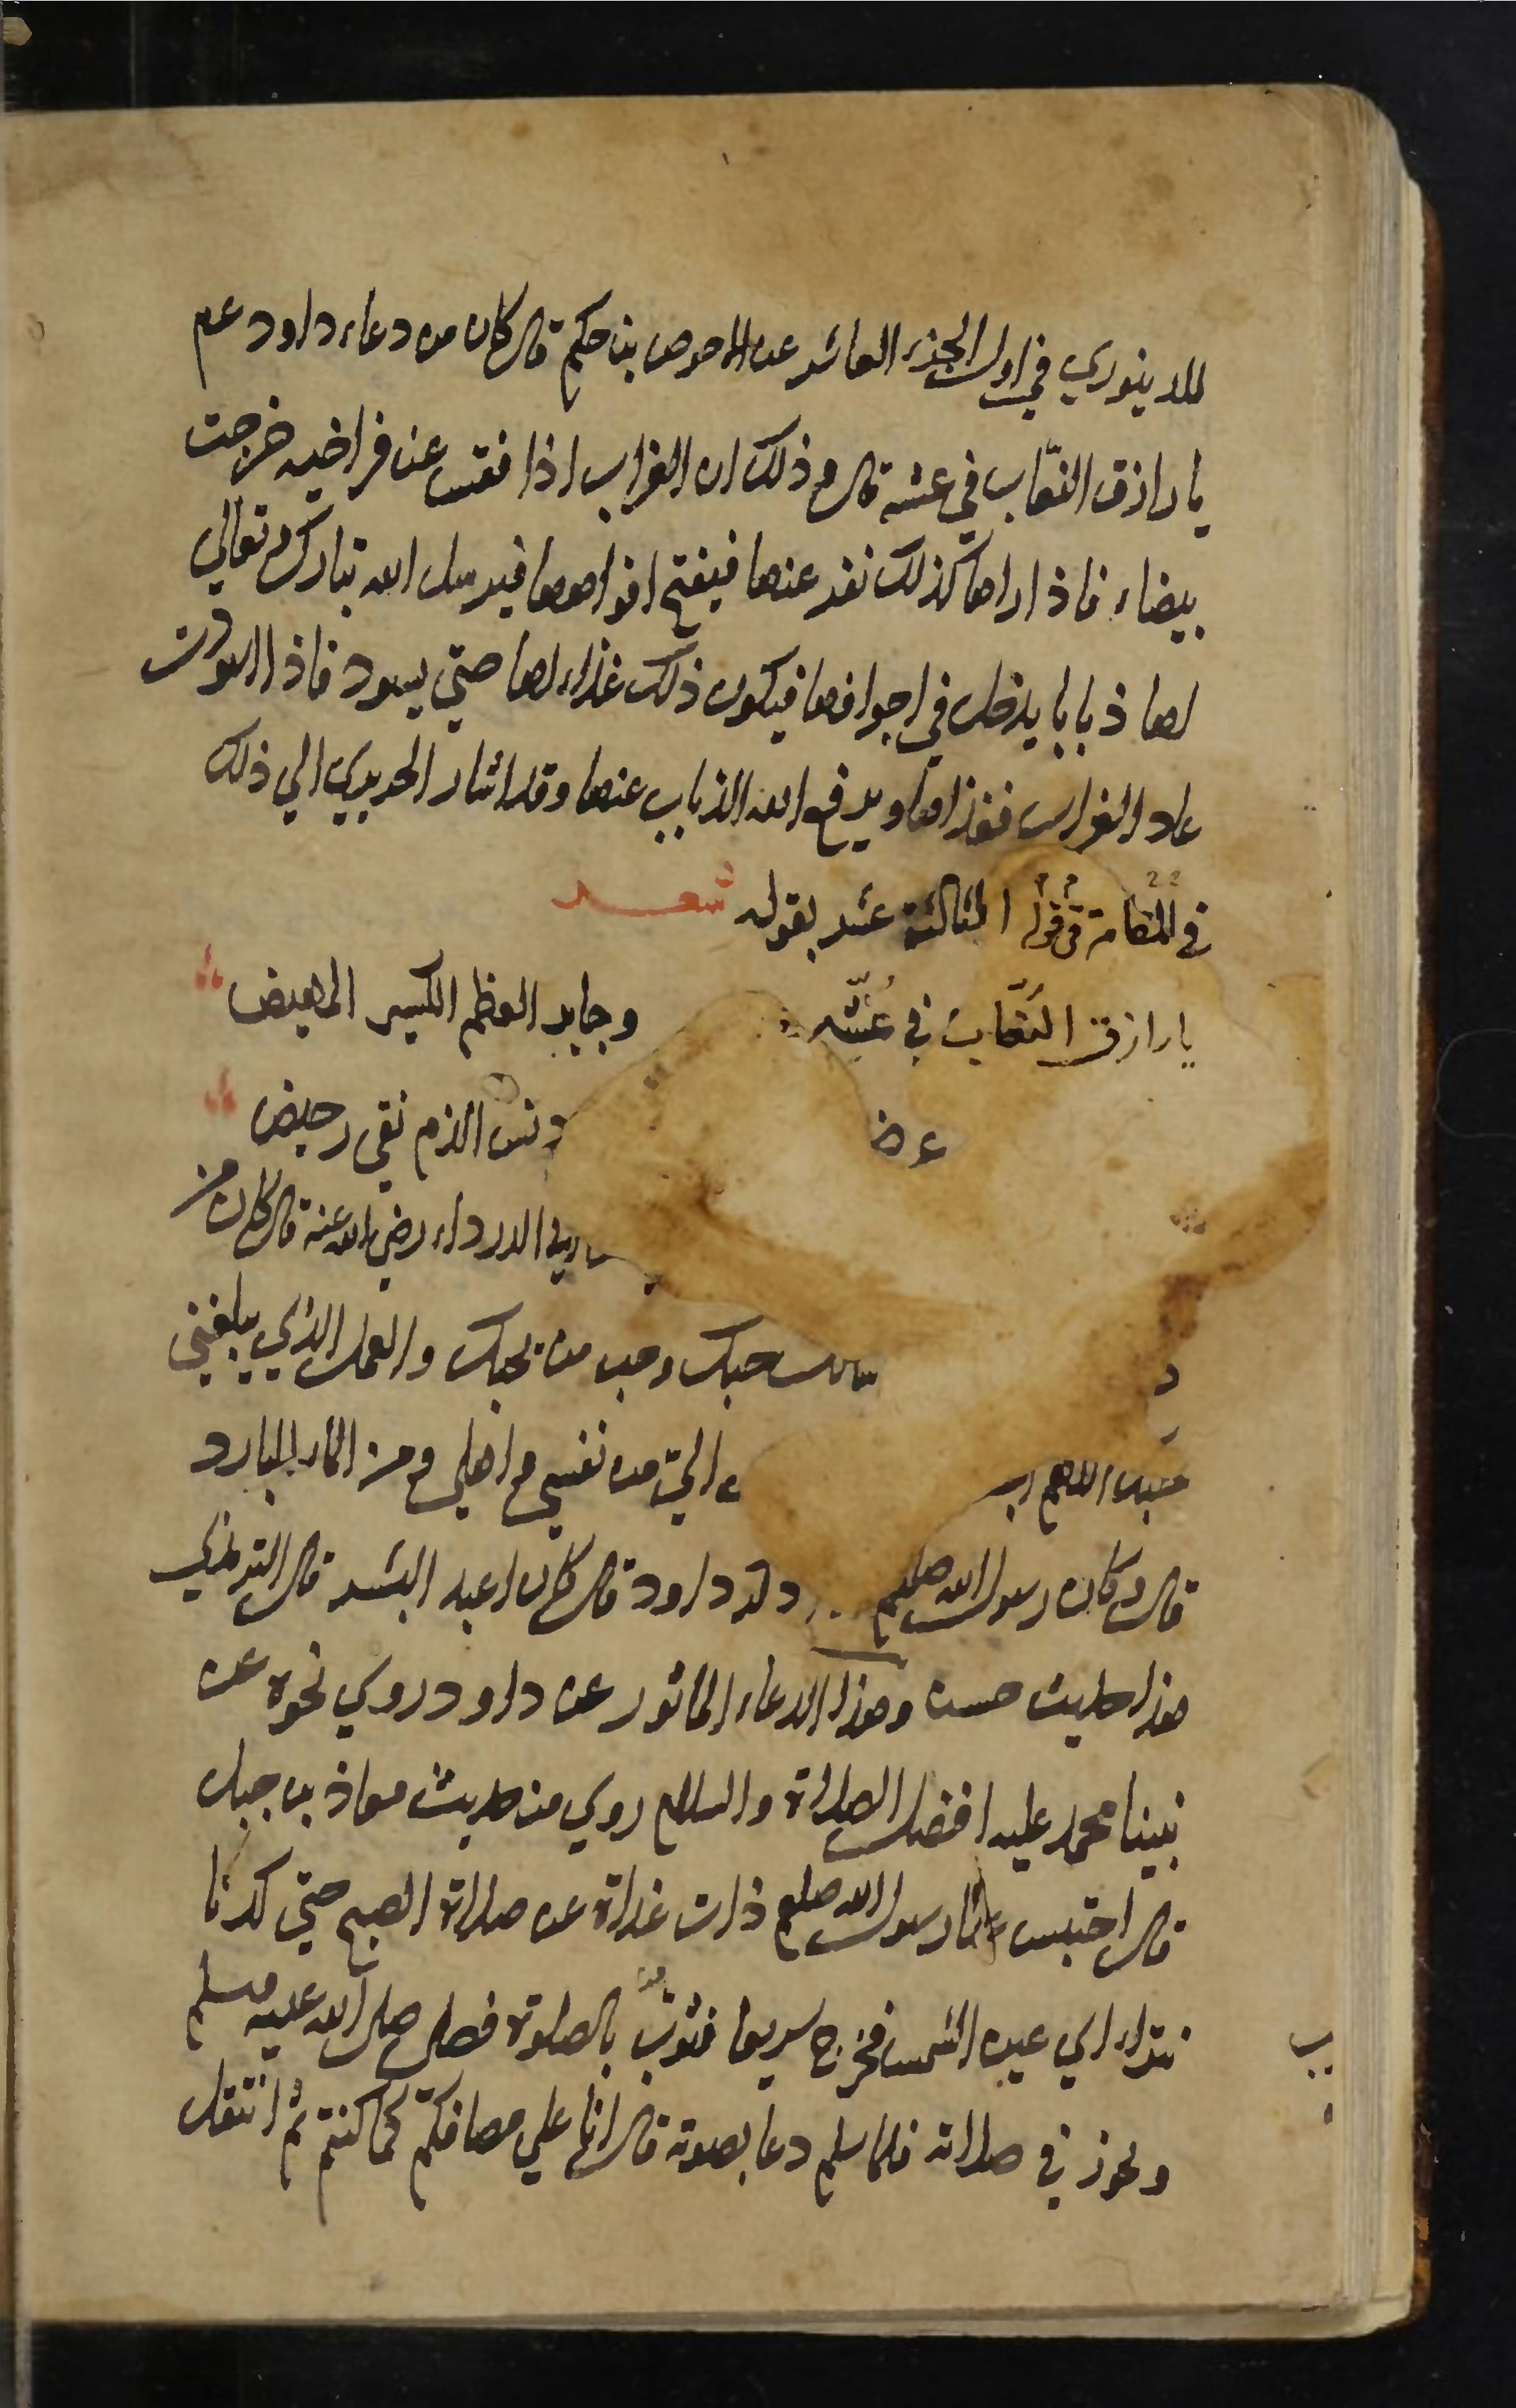 للدينوري في اول الجزء العاشر عن الاحوص بن حكيم قال كان من دعاء داود عم
يا رازق النعّاب في عشه قال و ذلك ان الغراب اذا فقس عن فراخيه خرجت
بيضاء فاذا راها كذلك نفر عنها فيفتح افواهها فيرسل الله تبارك و تعالي
لها ذبابا يدخل في اجوافها فيكون ذلك غذاء لها حتي يسود فاذا اسودت
عاد الغراب فغذاها و يرفع الله الذباب عنها وقد اشار الحريري الي ذلك
في المقامة في قوله الثالثة عشر بقوله شعر
يا رازق النعّاب في عُشّه وجابر العظم الكسير المهيض
دنس الذم نقي رحيض
الدرداء رضي الله عنه قال كان من
حبك وحب من يحبك والعمل الذي يبلغني
حبك اللهم اليّ من نفسي و اهلي و من الماء البارد
قال و كان رسول الله صلعم داود قال كان اعبد البشر قال الترمذي
هذا حديث حسن وهذا الدعاء الماثور عن داود روي نحوه عن
نبينا محمد عليه افضل الصلاة والسلام روي من حديث معاذ بن جبل
قال احتبس عنا رسول الله صلعم ذات غداة عن صلاة الصبح حتي كدنا
نتراءاي عين الشمس فخرج سريعا فثوّب بالصلوة فصلى صلى الله عليه وسلم
وتجوز في صلاته فلما سلم دعا بصوته قال لنا علي مصافكم كما كنتم ثم انتقل